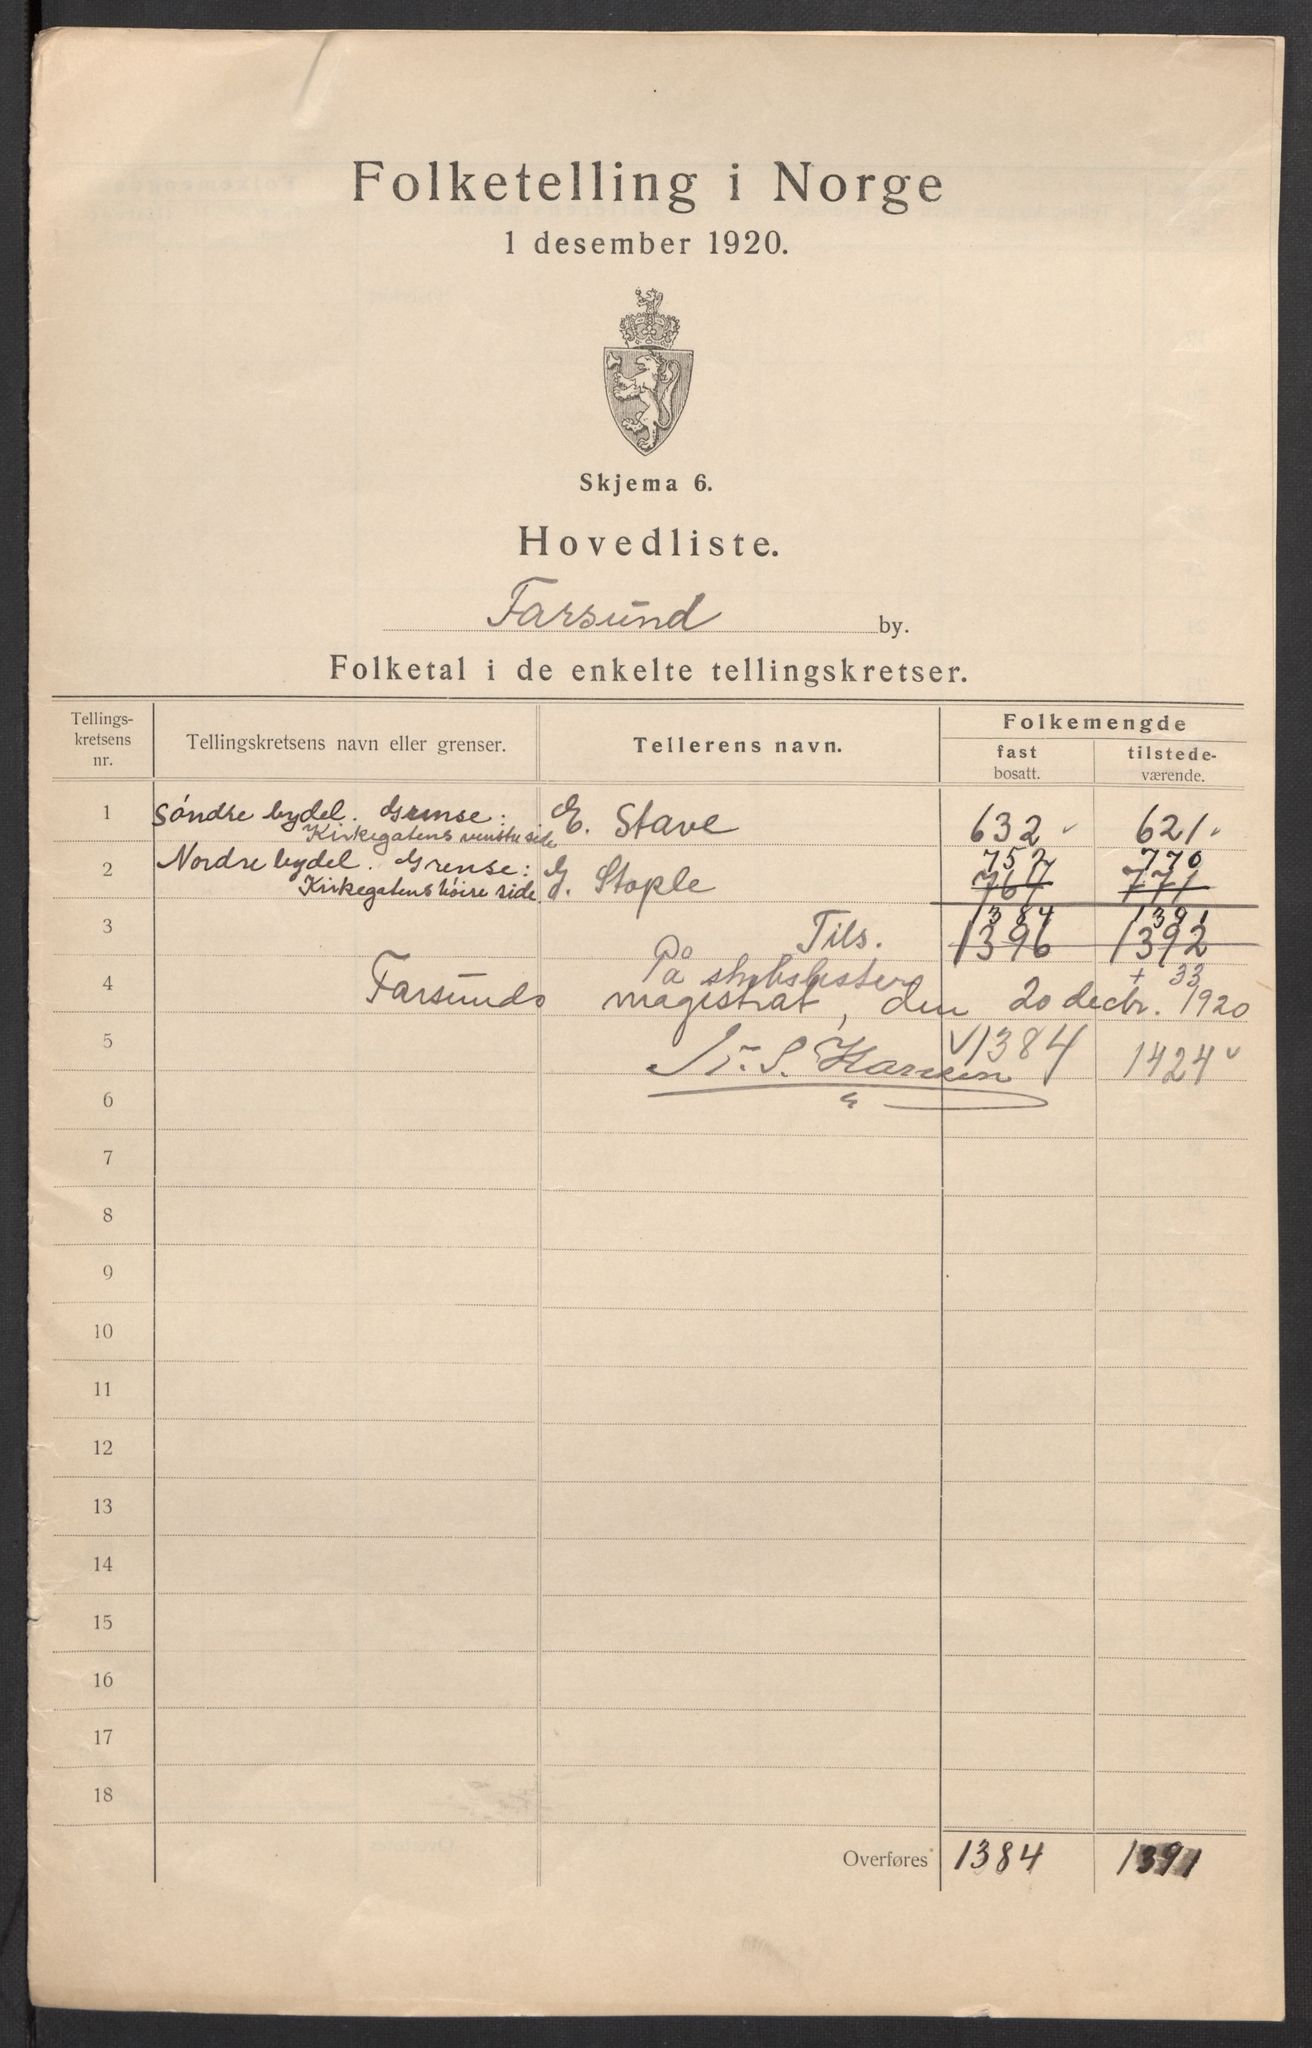 Folketelling i Norge
1 desember 1920.
Skjema 6.
Hovedliste.
Farsund by.
Folketal i de enkelte tellingskretser.
Tellings-kretsens nr. Tellingskretsens navn eller grenser. Tellerens navn. Folkemengde
fast bosatt. tilstede-værende.
1 Søndre bydel. Grense: E. Stave 632 621
Kirkegatens venstre side
752 770
2 Nordre bydel. Grense: G. Stople 764 771
Kirkegatens höire side
1384 1391
3 Tils. 1396 1392
På skibslister + 33
4 Farsunds magistrat, den 20 decbr. 1920
5 S. Hansen 1384 1424
6
7
8
9
10
11
12
13
14
15
16
17
18
Overføres 1384 1391